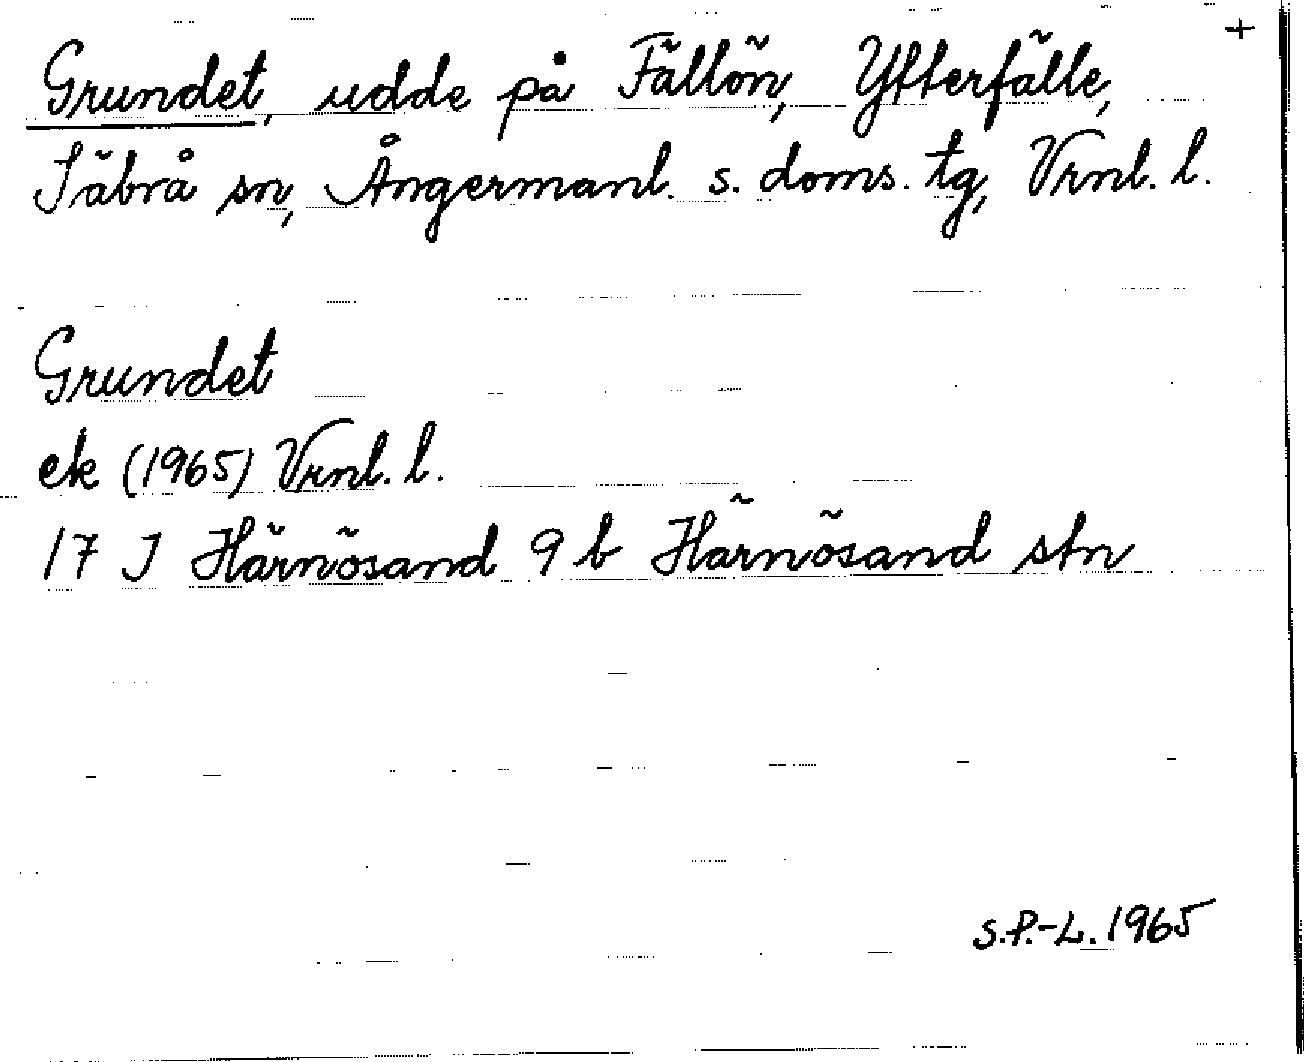 +
Grundet, udde på Fällön, Ytterfälle,
Säbrå sn, Ångermanl. s. doms. tg, Vrnl. l.
Grundet
ek (1965) Vrnl. l.
17 J Härnösand 9 b Härnösand stn
S.P.-L. 1965